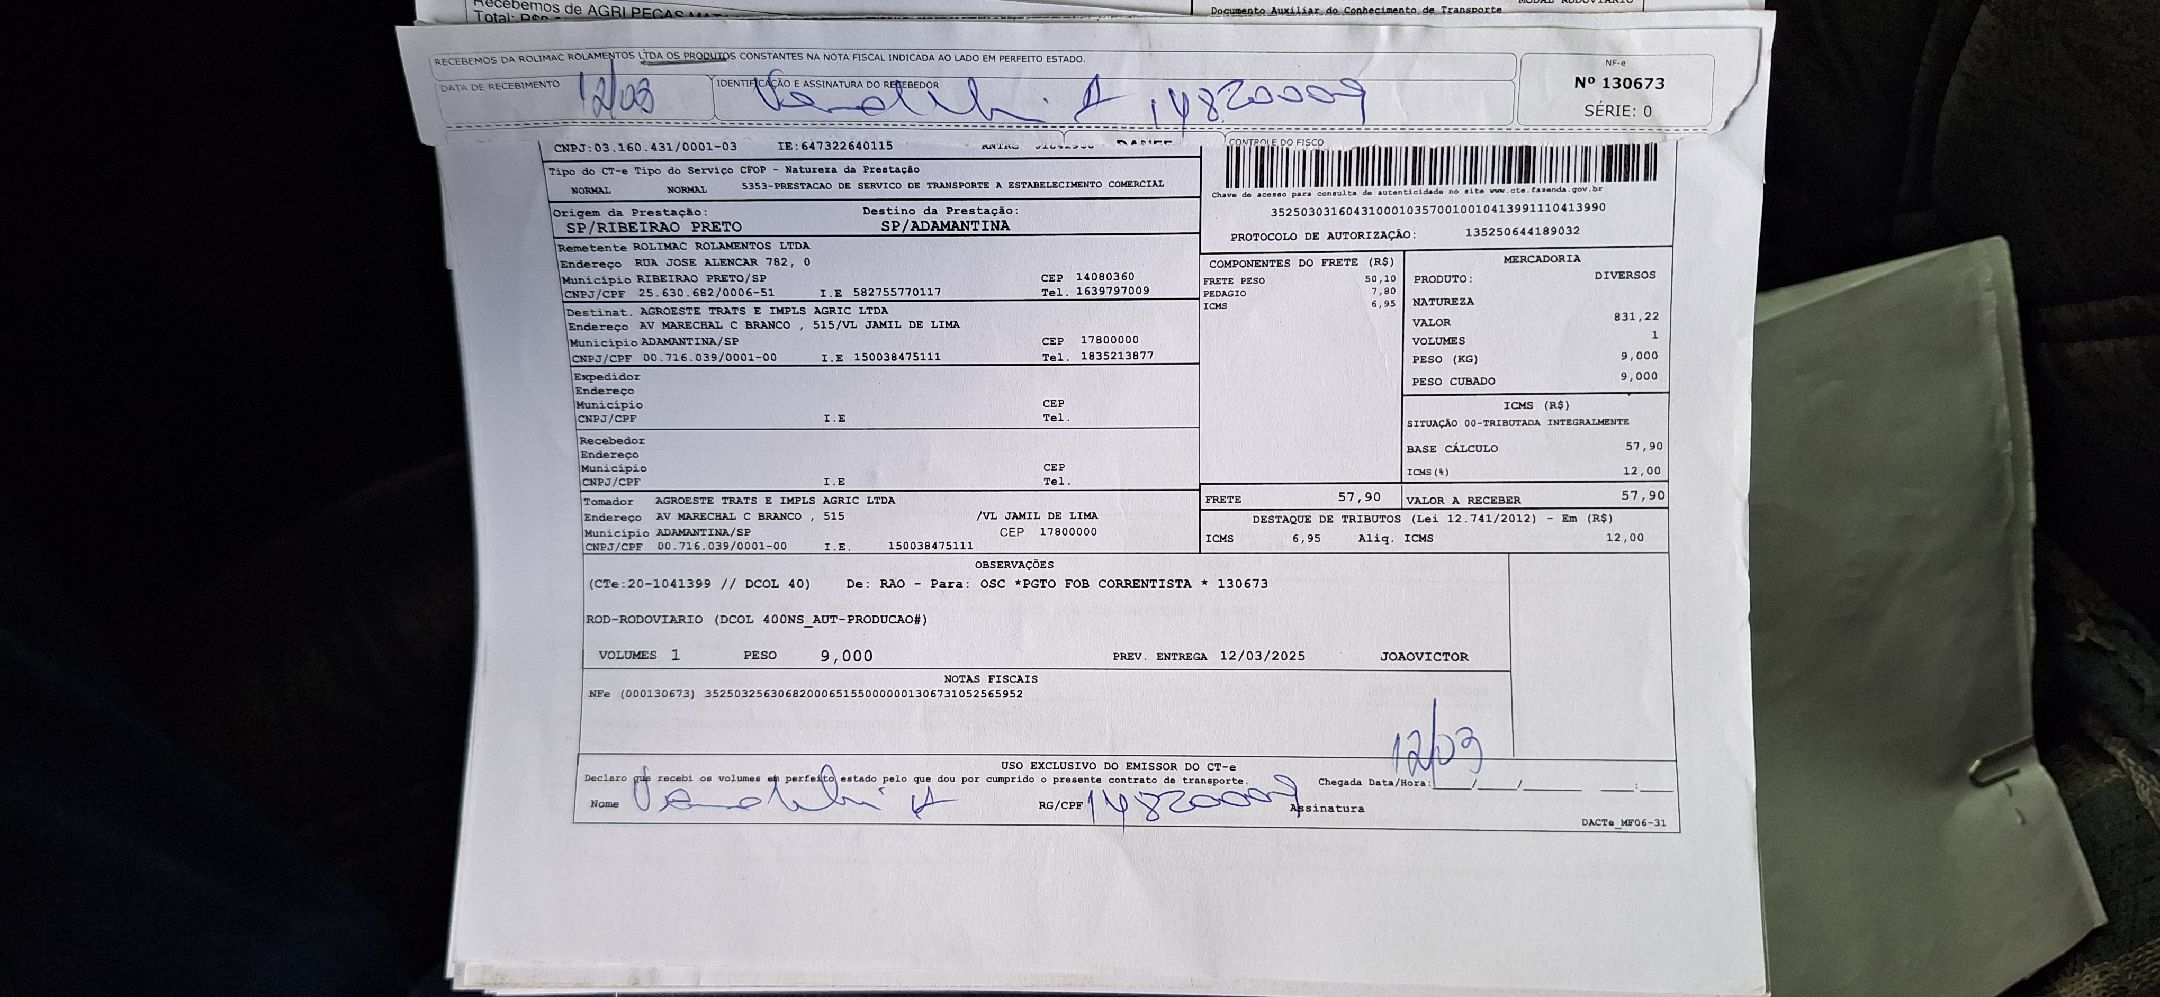 Recebemos de AGRI PEÇAS
Documento Auxiliar do Conhecimento de Transporte
RECEBEMOS DA ROLIMAC ROLAMENTOS LTDA OS PRODUTOS CONSTANTES NA NOTA FISCAL INDICADA AO LADO EM PERFEITO ESTADO.
NF-e
Nº 130673
SÉRIE: 0
DATA DE RECEBIMENTO 12/03
IDENTIFICAÇÃO E ASSINATURA DO RECEBEDOR
14820009
CNPJ:03.160.431/0001-03 IE:647322640115
CONTROLE DO FISCO
Tipo do CT-e Tipo do Serviço CFOP - Natureza da Prestação
NORMAL NORMAL 5353-PRESTACAO DE SERVICO DE TRANSPORTE A ESTABELECIMENTO COMERCIAL
Chave de acesso para consulta de autenticidade no site www.cte.fazenda.gov.br
35250303160431000103570010010413991110413990
PROTOCOLO DE AUTORIZAÇÃO: 135250644189032
Origem da Prestação: Destino da Prestação:
SP/RIBEIRAO PRETO SP/ADAMANTINA
Remetente ROLIMAC ROLAMENTOS LTDA
Endereço RUA JOSE ALENCAR 782, 0
Município RIBEIRAO PRETO/SP CEP 14080360
CNPJ/CPF 25.630.682/0006-51 I.E 582755770117 Tel. 1639797009
Destinat. AGROESTE TRATS E IMPLS AGRIC LTDA
Endereço AV MARECHAL C BRANCO , 515/VL JAMIL DE LIMA
Município ADAMANTINA/SP CEP 17800000
CNPJ/CPF 00.716.039/0001-00 I.E 150038475111 Tel. 1835213877
Expedidor
Endereço
Município CEP
CNPJ/CPF I.E Tel.
Recebedor
Endereço
Município CEP
CNPJ/CPF I.E Tel.
Tomador AGROESTE TRATS E IMPLS AGRIC LTDA
Endereço AV MARECHAL C BRANCO , 515 /VL JAMIL DE LIMA
Município ADAMANTINA/SP CEP 17800000
CNPJ/CPF 00.716.039/0001-00 I.E. 150038475111
COMPONENTES DO FRETE (R$)
FRETE PESO 50,10
PEDAGIO 7,80
ICMS 6,95
MERCADORIA
PRODUTO: DIVERSOS
NATUREZA
VALOR 831,22
VOLUMES 1
PESO (KG) 9,000
PESO CUBADO 9,000
ICMS (R$)
SITUAÇÃO 00-TRIBUTADA INTEGRALMENTE
BASE CÁLCULO 57,90
ICMS(%) 12,00
FRETE 57,90 VALOR A RECEBER 57,90
DESTAQUE DE TRIBUTOS (Lei 12.741/2012) - Em (R$)
ICMS 6,95 Aliq. ICMS 12,00
OBSERVAÇÕES
(CTe:20-1041399 // DCOL 40) De: RAO - Para: OSC *PGTO FOB CORRENTISTA * 130673
ROD-RODOVIARIO (DCOL 400NS_AUT-PRODUCAO#)
VOLUMES 1 PESO 9,000 PREV. ENTREGA 12/03/2025 JOAOVICTOR
NOTAS FISCAIS
NFe (000130673) 35250325630682000651550000001306731052565952
12/03
USO EXCLUSIVO DO EMISSOR DO CT-e
Declaro que recebi os volumes em perfeito estado pelo que dou por cumprido o presente contrato de transporte. Chegada Data/Hora:___/___/_____ ___:___
Nome RG/CPF 14820009 Assinatura
DACTe_MF06-31